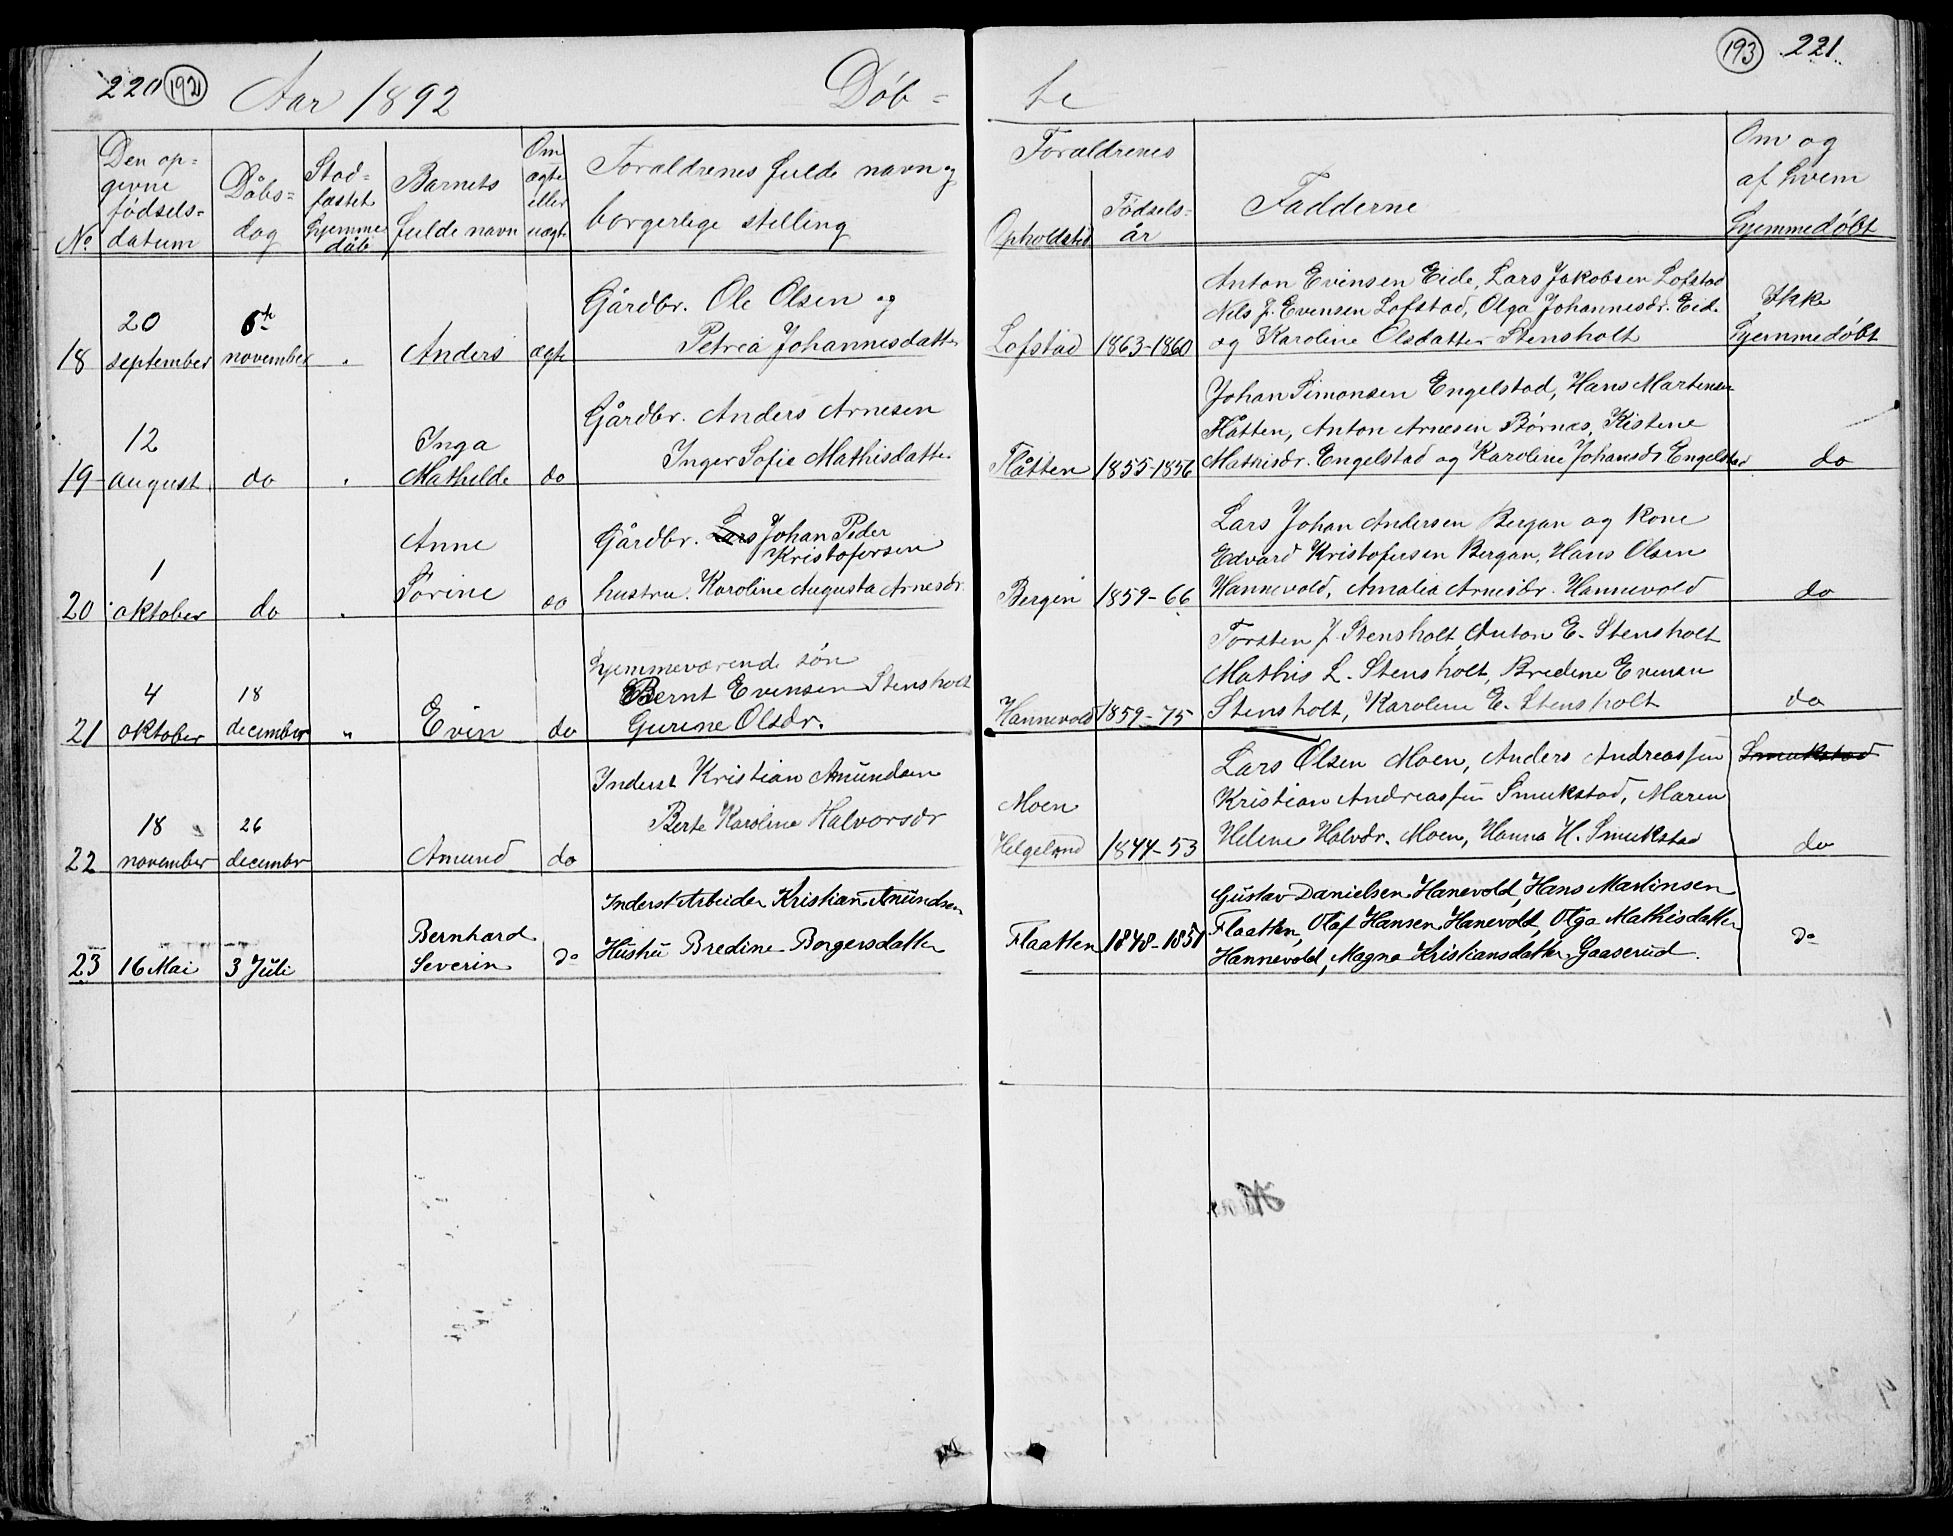 220 192 Aar 1892 Døb-
te 193 221.
No
Den op-
givne
fødsels-
datum
Dåbs-
dag
Stad-
fæstet
hjemme
dåb
Barnets
fulde navn
Om
ægte
eller
uægte
Forældrenes fulde navn og
borgerlige stilling
Forældrenes
Opholdsted
Fødsels-
år
Fadderne
Om og
af hvem
hjemmedøbt
18
20
september
6te
november
Anders
ægte
Gårdbr. Ole Olsen og
Petrea Johannesdatter
Lofstad
1863-1860
Anton Evensen Eide, Lars Jakobsen Lofstad
Nils J. Evensen Lofstad, Olga Johannesdr. Eid.
og Karoline Olsdatter Stensholt
Ikke
hjemmedøbt
19
12
august
do
Inga
Mathilde
do
Gårdbr. Anders Arnesen
Inger Sofie Mathisdatter
Flåtten
1855-1856
Johan Simonsen Engelstad, Hans Martinsen
Flåtten, Anton Arnesen Børnes, Kistene
Mathisdr. Engelstad og Karoline Johansdr Engelstad
do
20
1
oktober
do
Anne
Sørine
do
Gårdbr. Lars Johan Peder
Kristofersen
hustru. Karoline Augusta Arnesdr.
Bergen
1859-66
Lars Johan Andersen Bergan og Kone
Edvard Kristofersen Bergan, Hans Olsen
Hannevold, Amalia Arnesdr. Hannevold
do
21
4
oktober
18
december
"
Even
do
hjemmeværende søn
Bernt Evensen Stensholt
Gurine Olsdr.
Hannevold
1859-75
Torsten J. Stensholt, Anton E. Stensholt
Mathis L. Stensholt, Bredine Evensen
Stensholt, Karoline E. Stensholt
do
22
18
november
26
decembr
Amund
do
Inderst Kristian Amundsen
Berte Karoline Halvorsdr
Moen
Helgeland
1844-53
Lars Olsen Moen, Anders Andreassen Smukstad
Kristian Andreassen Smukstad, Maren
Helene Halvdr. Moen, Hanna H. Smukstad
do
23
16 Mai
3 Juli
Bernhard
Severin
do
Inderst Arbeider Kristian Amundsen
Hustru Bredine Borgersdatter
Flaatten
1848-1851
Gustav Danielsen Hanevold, Hans Martinsen
Flaatten, Olaf Hansen Hanevold, Olga Mathisdatter
Hannevold, Magna Kristiansdatter Gaaserud.
do